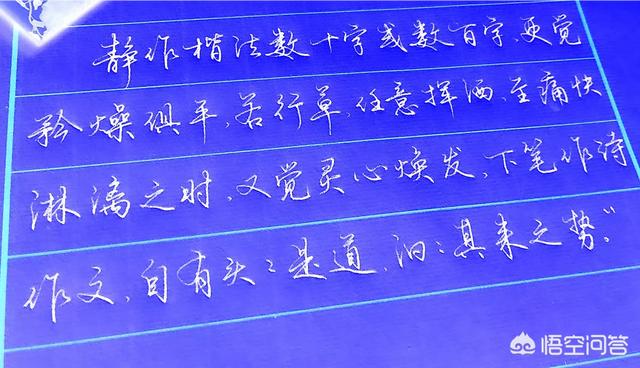 静作楷法数十字或数百字,更觉
矜燥俱平,若行草,任意挥洒,至痛快
淋漓之时,又觉灵心焕发,下笔作诗
作文,自有头:是道,汩:其来之势。”
悟空问答